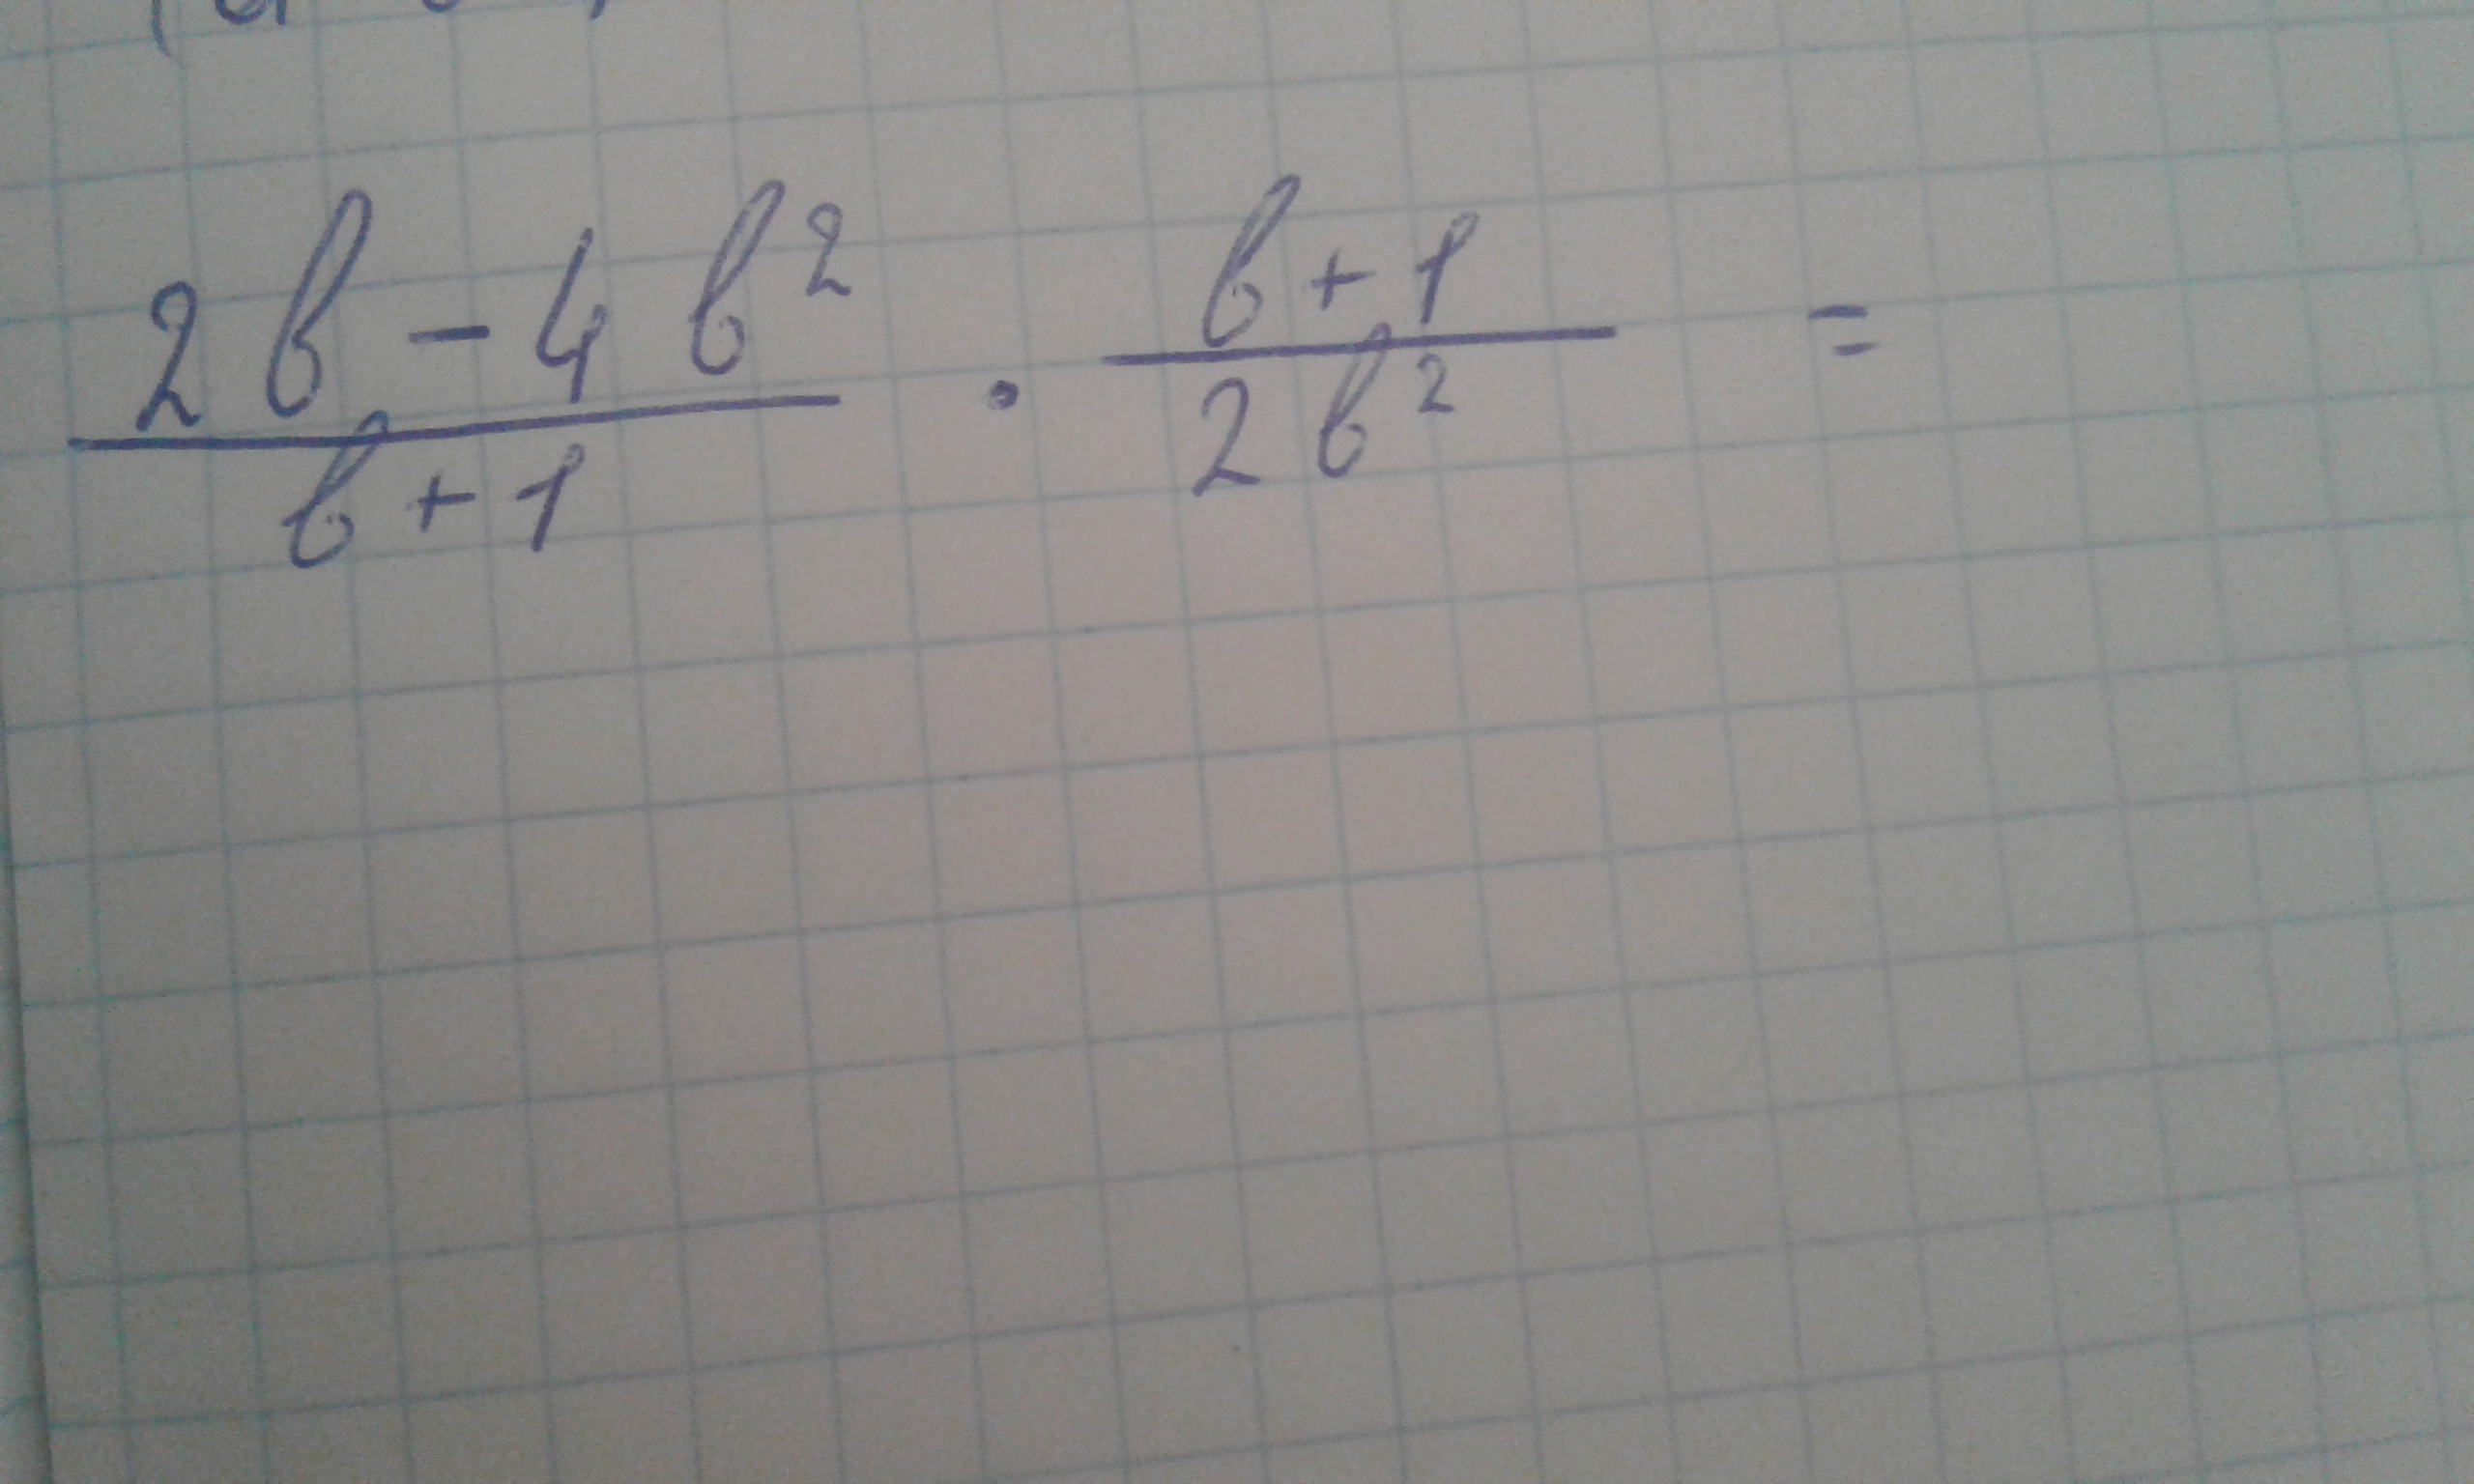 (2b - 4b²)/(b + 1) · (b + 1)/(2b²) =